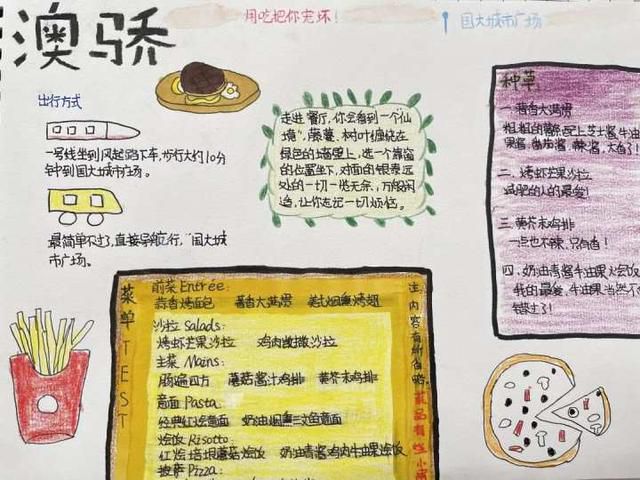 澳骄
用吃把你宠坏！
国大城市广场
出行方式
一号线坐到凤起路下车，步行大约10分
钟到国大城市广场。
最简单不过了，直接导航行，“国大城
市广场。
走进餐厅，你会看到一个“仙
境”，藤蔓、树叶缠绕在
绿色的墙壁上，选一个靠窗
的位置坐下，对面的银泰远
处的一切一览无余，万般闲
适，让你忘记一切烦恼。
种草
一.酱香大满贯
粗粗的薯条配上芝士酱牛油
果酱，番茄酱，辣酱，大杏了！
二.烤虾芒果沙拉
减肥的人的最爱！
三.黄芥末鸡排
一点也不辣，只有香！
四.奶油青酱牛油果火烩饭
我的最爱，牛油果当然不
错过了！
菜单TEST
前菜Entrée:
蒜香烤面包 薯香大满贯 美式烟熏烤翅
沙拉Salads:
烤虾芒果沙拉 鸡肉凯撒沙拉
主菜Mains:
肠遍四方 蘑菇酱汁鸡排 黄芥末鸡排
意面Pasta:
经典红烩意面 奶油烟熏三文鱼意面
烩饭Risotto:
红烩培根蘑菇烩饭 奶油青酱鸡肉牛油果烩饭
披萨Pizza:
注：内容有所省略。
菜品有些小